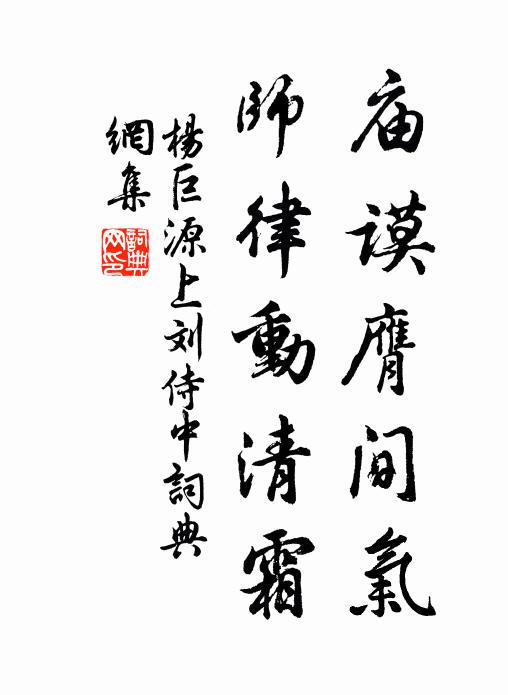 庙谟膺间氣
師律動清霜
楊巨源上刘侍中詞典
網集
詞典網印